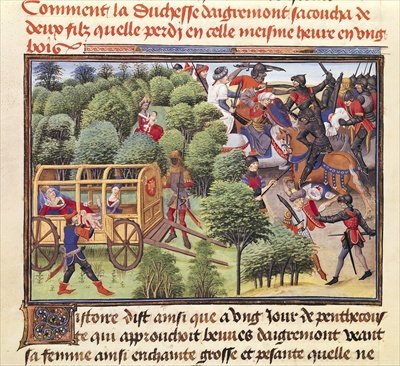 Comment la Duchesse daigremont sacoucha de
deux filz quelle perdi en celle meisme heure en vng
bois
Histoire dist ainsi que a vng Jour de penthecous
te qui approuchoit beuues daigremont veant
sa femme ainsi enchainte grosse et pesante quelle ne